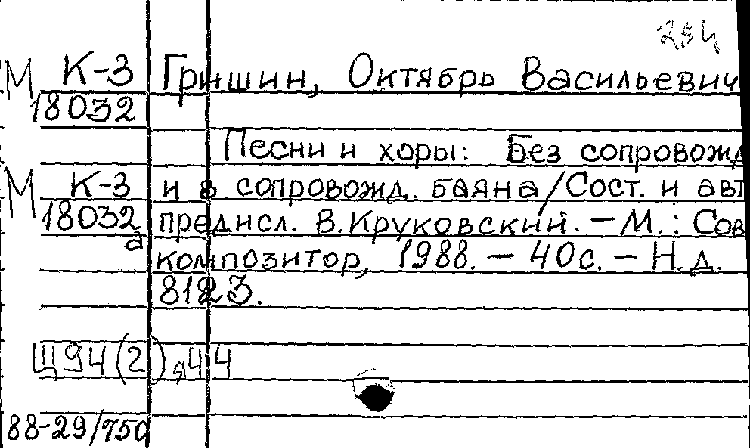 254
М К-3 Гришин, Октябрь Васильевич
18032
Песни и хоры: Без сопровожд
М К-3 и в сопровожд. баяна/Сост. и авт
18032 предисл. В.Круковский. – М.: Сов
а композитор, 1988. – 40с. – Н.д.
8123.
Щ94(2)я44
88-29/750